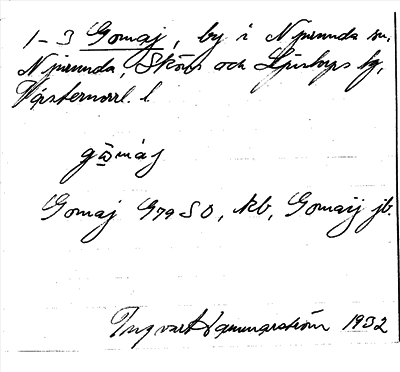 1-3 Gomaj, by i Njurunda sn,
Njurunda, Sköns och Ljustorps tg,
Västernorrl. l.
gω̲màj
Gomaj G79 SO, kb, Gomaij jb.
Ingvart Hammarström 1932